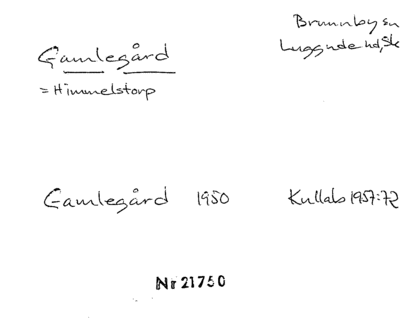 Brunnby sn
Luggude hd, Sk
Gamlegård
= Himmelstorp
Gamlegård 1950 Kullabs 1957:72
Nr 21750